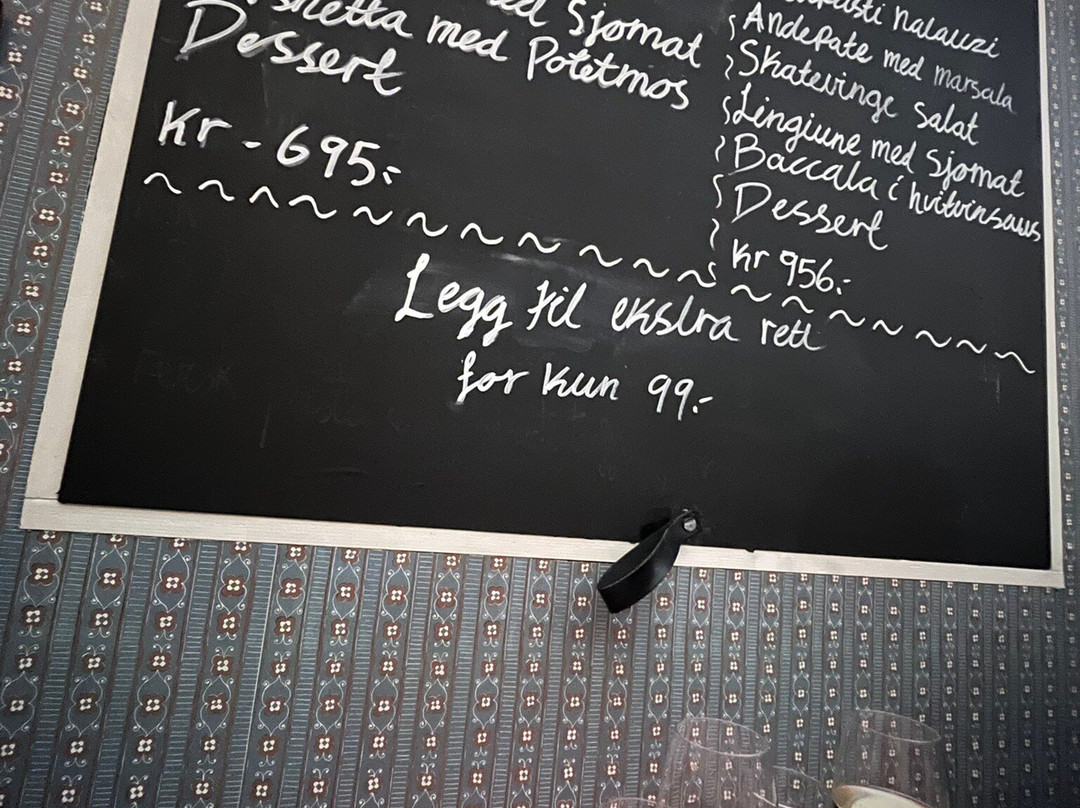 med Sjømat
med Potetmos
Dessert
Kr - 695:-
Andepate med marsala
Skatevinge Salat
Lingiune med Sjømat
Baccala i hvitvinsaus
Dessert
Kr 956:-
Legg til ekstra rett
for kun 99:-